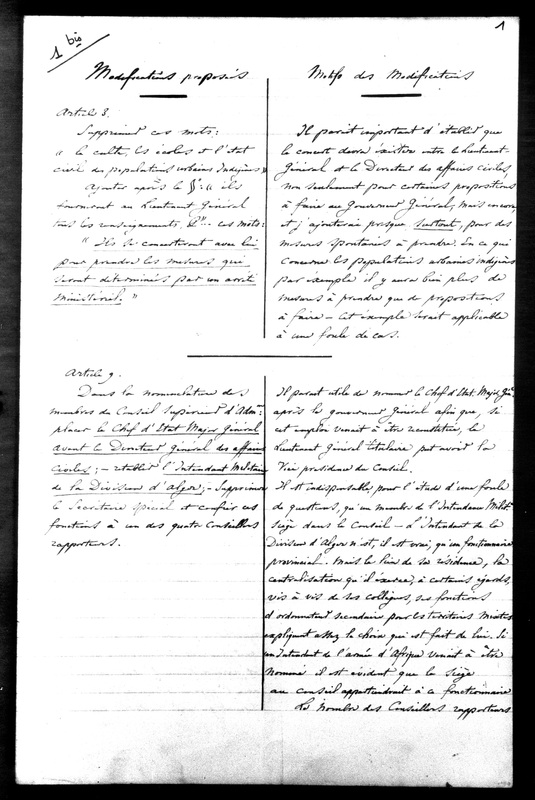 1
1 bis
Modifications proposées
Article 8.
Supprimer ces mots:
" le culte, les écoles et l'état
civil des populations urbaines indigènes "
Ajouter après le §: " ils
fourniront au Lieutenant Général
tous les renseignements, &" ces mots:
" Ils se concerteront avec lui
pour prendre les mesures qui
seront déterminées par un arrêté
ministériel. "
Motifs des Modifications
Il paraît important d'établir que
le concert devra exister entre le Lieutenant-
Général et le Directeur des affaires civiles,
non seulement pour certaines propositions
à faire au Gouverneur Général, mais encore,
et j'ajouterai presque surtout, pour des
mesures spontanées à prendre. En ce qui
concerne les populations urbaines indigènes
par exemple il y aura bien plus de
mesures à prendre que de propositions
à faire – cet exemple serait applicable
à une foule de cas.
Article 9.
Dans la nomenclature des
membres du Conseil supérieur d'Adm.on
placer le Chef d'Etat Major Général
avant le Directeur Général des affaires
civiles; – établir l'Intendant Militaire
de la Division d'Alger; – Supprimer
le Secrétaire spécial et confier ces
fonctions à un des quatre Conseillers
rapporteurs.
Il parait utile de nommer le Chef d'Etat Major Gal
après le gouverneur Général afin que, si
cet emploi venait à être
le
Lieutenant Général titulaire put avoir la
Vice présidence du Conseil.
Il est indispensable, pour l'étude d'une foule
de questions, qu'un membre de l'Intendance Milit.
siège dans le Conseil – L'Intendant de la
Division d'Alger n'est, il est vrai, qu'un fonctionnaire
provincial. Mais le lieu de sa résidence, la
centralisation qu'il exerce, à certains égards,
vis à vis de ses collègues, ses fonctions
d'ordonnateur secondaire pour les territoires mixtes
expliquent assez le choix qui est fait de lui. Si
un Intendant de l'armée d'Afrique venait à être
nommé il est évident que le siège
au conseil appartiendrait à ce fonctionnaire
Le nombre des Conseillers rapporteurs